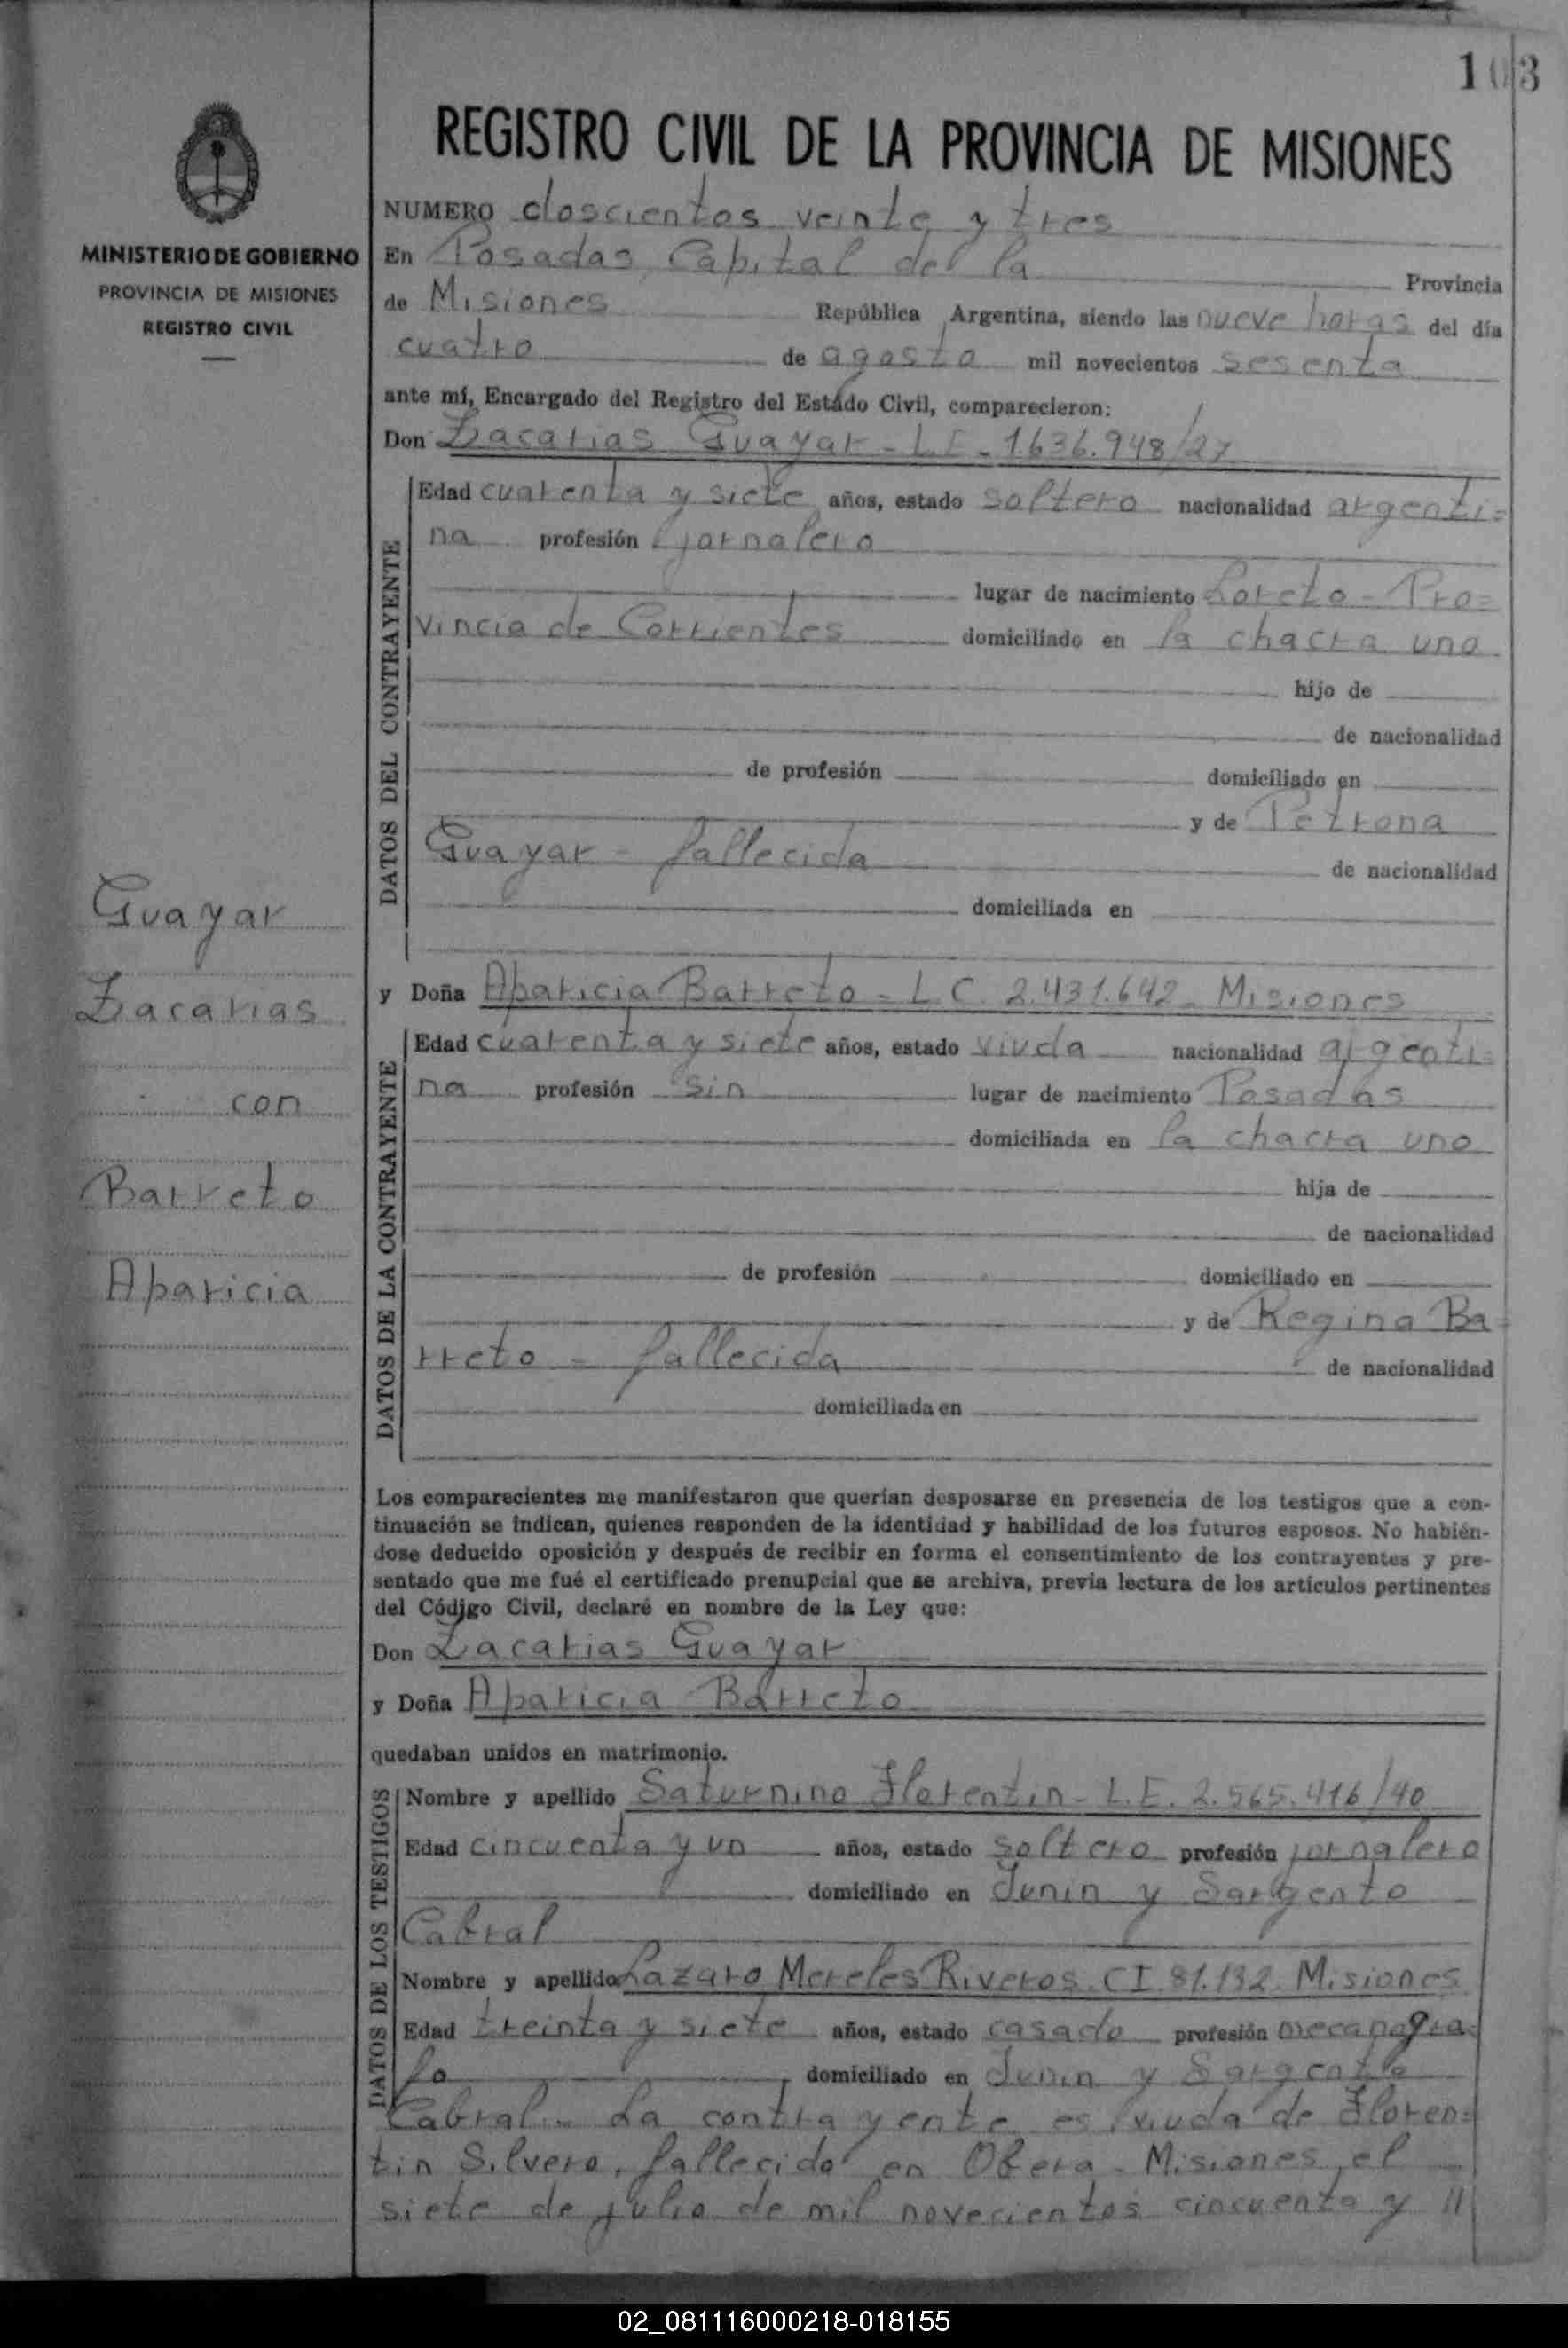 103
REGISTRO CIVIL DE LA PROVINCIA DE MISIONES
MINISTERIO DE GOBIERNO
PROVINCIA DE MISIONES
REGISTRO CIVIL
NUMERO doscientos veinte y tres
En Posadas, Capital de la Provincia
de Misiones República Argentina, siendo las nueve horas del día
cuatro de agosto mil novecientos sesenta
ante mí, Encargado del Registro del Estado Civil, comparecieron:
Don Zacarias Guayar - L.E. - 1.636.948/27
DATOS DEL CONTRAYENTE
Edad cuarenta y siete años, estado soltero nacionalidad argenti=
na profesión jornalero
lugar de nacimiento Loreto - Pro=
vincia de Corrientes domiciliado en la chacra uno
hijo de
de nacionalidad
de profesión domiciliado en
y de Petrona
Guayar - fallecida de nacionalidad
domiciliada en
Guayar
Zacarias
con
Barreto
Aparicia
y Doña Aparicia Barreto - L.C. 2.431.642 - Misiones
DATOS DE LA CONTRAYENTE
Edad cuarenta y siete años, estado viuda nacionalidad argenti=
na profesión sin lugar de nacimiento Posadas
domiciliada en la chacra uno
hija de
de nacionalidad
de profesión domiciliado en
y de Regina Ba=
rreto - fallecida de nacionalidad
domiciliada en
Los comparecientes me manifestaron que querían desposarse en presencia de los testigos que a con-
tinuación se indican, quienes responden de la identidad y habilidad de los futuros esposos. No habién-
dose deducido oposición y después de recibir en forma el consentimiento de los contrayentes y pre-
sentado que me fué el certificado prenupcial que se archiva, previa lectura de los artículos pertinentes
del Código Civil, declaré en nombre de la Ley que:
Don Zacarias Guayar
y Doña Aparicia Barreto
quedaban unidos en matrimonio.
DATOS DE LOS TESTIGOS
Nombre y apellido Saturnino Florentin - L.E. 2.565.416/40
Edad cincuenta y un años, estado soltero profesión jornalero
domiciliado en Junin y Sargento
Cabral
Nombre y apellido Lazaro Mereles Riveros. C I. 81.132 Misiones
Edad treinta y siete años, estado casado profesión mecanogra=
fo domiciliado en Junin y Sargento
Cabral.- La contrayente es viuda de Floren=
tin Silvero, fallecido en Obera - Misiones, el
siete de julio de mil novecientos cincuenta y //
02_081116000218-018155